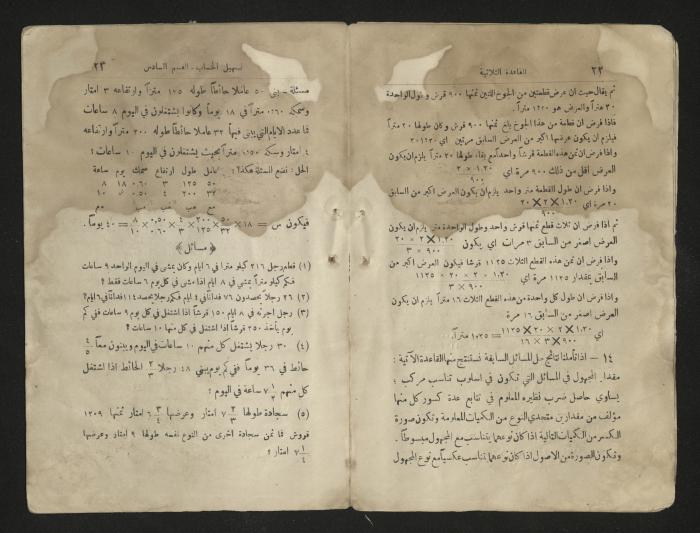 ٢٢ القاعدة الثلاثية
ثم يقال حيث ان عرض قطعتين من الجوخ اللتين ثمنها ٩٠٠ قرش وطول الواحدة
٢٠ متراً والعرض هو ١٬٢٠ متراً.
فاذا فرض ان قطعة من هذا الجوخ بلغ ثمنها ٩٠٠ قرش وكان طولها ٢٠ متراً
فيلزم ان يكون عرضها اكبر من العرض السابق مرتين اي ١٬٢٠×٢
واذا فرض ان ثمن هذه القطعة قرشاً واحداً مع بقاء طولها ٢٠ متراً يلزم ان يكون
العرض اقل من ذلك ٩٠٠ مرة اي ١٬٢٠ × ٢ / ٩٠٠
واذا فرض ان طول القطعة متر واحد يلزم ان يكون العرض اكبر من السابق
٢٠ مرة اي ١٬٢٠ × ٢ × ٢٠ / ٩٠٠
ثم اذا فرض ان ثلاث قطع ثمنها قرش واحد وطول الواحدة متر يلزم ان يكون
العرض اصغر من السابق ٣ مرات اي يكون ١٬٢٠ × ٢ × ٢٠ / ٣ × ٩٠٠
واذا فرض ان ثمن هذه القطع الثلاث ١١٢٥ قرشا فيكون العرض اكبر من
السابق بمقدار ١١٢٥ مرة اي ١٬٢٠ × ٢ × ٢٠ × ١١٢٥ / ٣ × ٩٠٠
واذا فرض ان طول كل واحدة من هذه القطع الثلاث ١٦ متراً يلزم ان يكون
العرض اصغر من السابق ١٦ مرة
اي ١٬٢٠ × ٢ × ٢٠ × ١١٢٥ / ٩٠٠ × ٣ × ١٦ = ١٬٢٥ متراً.
١٤ – اذا تأملنا نتائج حل المسائل السابقة نستنتج منها القاعدة الآتية:
مقدار المجهول في المسائل التي تكون في اسلوب تناسب مركب
يساوي حاصل ضرب نظيره المعلوم في نتابع عدة كسور كل منها
مؤلف من مقدارين متحدي النوع من الكميات المعلومة وتكون صورة
الكسر من الكميات التالية اذا كان نوعها يتناسب مع المجهول مبسوطاً.
وتكون الصورة من الاصول اذا كان نوعها يتناسب عكسياً مع نوع المجهول
تسهيل الحساب – القسم السادس ٢٣
مسئلة – بنى ٥٠ عاملا حائطاً طوله ١٢٥ متراً وارتفاعه ٣ امتار
وسمكه ٠٬٦٠ متراً في ١٨ يوماً وكانوا يشتغلون في اليوم ٨ ساعات
فما عدد الايام التي يبني فيها ٣٢ عاملا حائطاً طوله ٢٠٠ متراً وارتفاعه
٤ امتار وسمكه ٠٬٥٠ متراً بحيث يشتغلون في اليوم ١٠ ساعات؟
الحل: نضع المسئلة هكذا: عامل طول ارتفاع سمك يوم ساعة
٥٠ ١٢٥ ٣ ٠٬٦٠ ١٨ ٨
٣٢ ٢٠٠ ٤ ٠٬٥٠ س ١٠
فيكون س = ١٨ × ٥٠/٣٢ × ٢٠٠/١٢٥ × ٤/٣ × ٠٬٥٠/٠٬٦٠ × ٨/١٠ = ٤٠ يوماً.
﴿ مسائل ﴾
(١) قطع رجل ٢١٦ كيلو مترا في ٦ ايام وكان يمشي في اليوم الواحد ٩ ساعات
فكم كيلو متراً يمشي في ٨ ايام اذا مشى في كل يوم ٦ ساعات فقط؟
(٢) ٢٦ رجلا يحصدون ٧٦ فداناً في ٤ ايام فكم رجلا يحصد ١١٤ فداناً في ٦ ايام؟
(٣) رجل اجرته في ٨ ايام ١٥٠ قرشاً اذا اشتغل في كل يوم ٩ ساعات ففي كم
يوم يأخذ ٢٥٠ قرشاً اذا اشتغل في كل منها ١٠ ساعات؟
(٤) ٣٠ رجلا يشتغل كل منهم ١٠ ساعات في اليوم ويبنون معاً ٤/٥
حائط في ٣٦ يوماً ففي كم يوم يبني ٤٨ رجلا ٢/٣ الحائط اذا اشتغل
كل منهم ٧ ١/٢ ساعة في اليوم؟
(٥) سجادة طولها ٧ ٢/٣ امتار وعرضها ٦ ٣/٤ امتار ثمنها ١٢٠٩
قروش فما ثمن سجادة اخرى من النوع نفسه طولها ٩ امتار وعرضها
٧ ١/٤ امتار؟